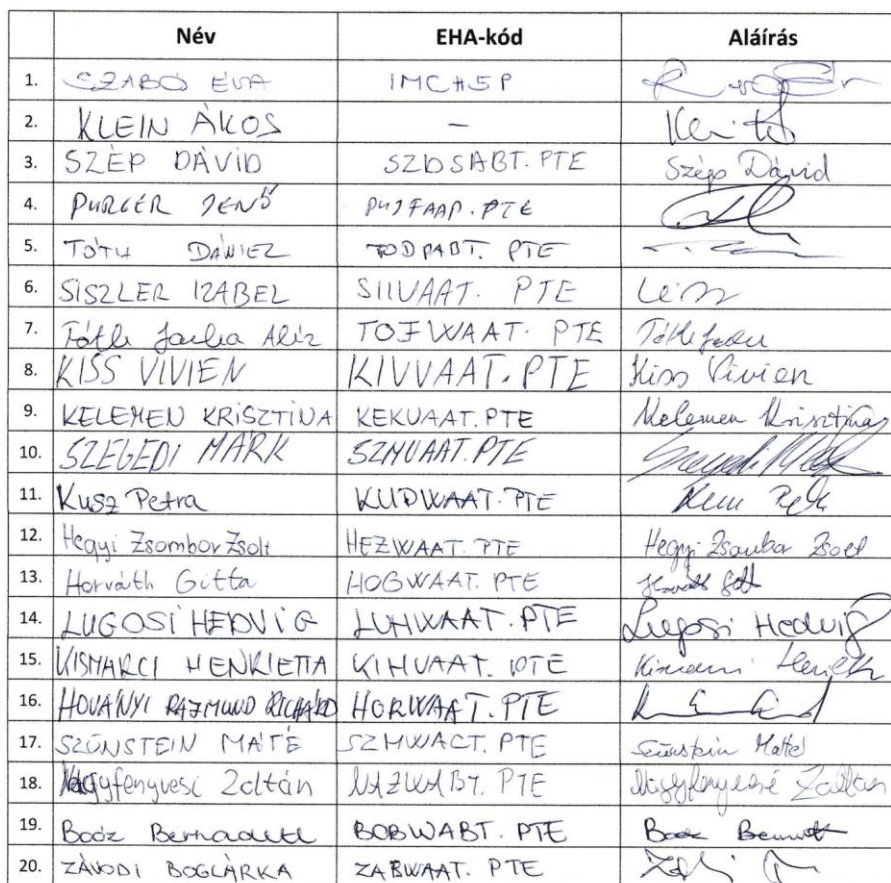 Név EHA-kód Aláírás
1. SZABÓ ÉVA IMCHSP
2. KLEIN ÁKOS –
3. SZÉP DÁVID SZDSABT.PTE Szép Dávid
4. PURGER JENŐ PUJFAAP.PTE
5. TÓTH DÁNIEL TODPABT. PTE
6. SISZLER IZABEL SIIVAAT. PTE
7. Tóth Alíz TOFWAAT. PTE
8. KISS VIVIEN KIVVAAT.PTE Kiss Vivien
9. KELEMEN KRISZTINA KEKVAAT.PTE Kelemen Krisztina
10. SZEGEDI MÁRK SZMVAAT.PTE
11. Kusz Petra KUPWAAT.PTE
12. Hegyi Zsombor Zsolt HEZWAAT.PTE Hegyi Zsombor Zsolt
13. Horváth Gitta HOGWAAT.PTE
14. LUGOSI HEDVIG LUHWAAT.PTE Lugosi Hedvig
15. KISMARCI HENRIETTA KIHVAAT. PTE
16. HOVÁNYI RAJMUND RICHÁRD HORWAAT.PTE
17. SZÜNSTEIN MÁTÉ SZMWACT. PTE Szünstein Máté
18. Nagyfenyvesi Zoltán NAZWABT. PTE Zoltán
19. Boóz Bernadett BOBWABT. PTE
20. ZÁVODI BOGLÁRKA ZABWAAT. PTE